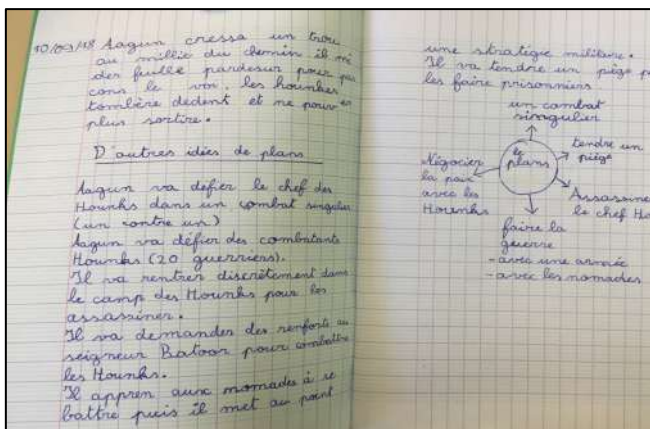 10/09/18 Aagun creusa un trou
au millie du chemin il mi
des feuille pardesur pour pas
cons le voi, les hounks
tombère dedent et ne pouv en
plus sortire.
D'autres idées de plans
Aagun va défier le chef des
Hounks dans un combat singulier
(un contre un)
Aagun va défier des combatants
Hounks (20 guerriers).
Il va rentrer discrètement dans
le camp des Hounks pour les
assassiner.
Il va demander des renforts au
seigneur Batoor pour combattre
les Hounks.
Il appren aux nomades à se
battre puis il met au point
une stratégie militaire.
Il va tendre un piège p
les faire prisonniers
un combat
singulier
le
plans
tendre un
piège
Négocier
la paix
avec les
Hounks
Assassine
le chef Ho
faire la
guerre
- avec une armée
- avec les nomades